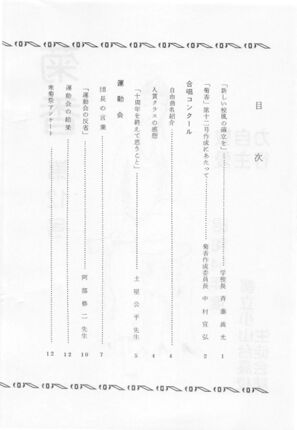 目次
「新しい校風の確立を」 学校長 斉藤義光 1
「菊香」第十二号作成にあたって 菊香作成委員長 中村宣弘 2
合唱コンクール
自由曲名紹介 4
入賞クラスの感想 4
運動会
「十周年を終えて思うこと」 土屋公平先生 5
団長の言葉 7
「運動会の反省」 阿部修二先生 10
運動会の結果 12
来菊祭アンケート 12